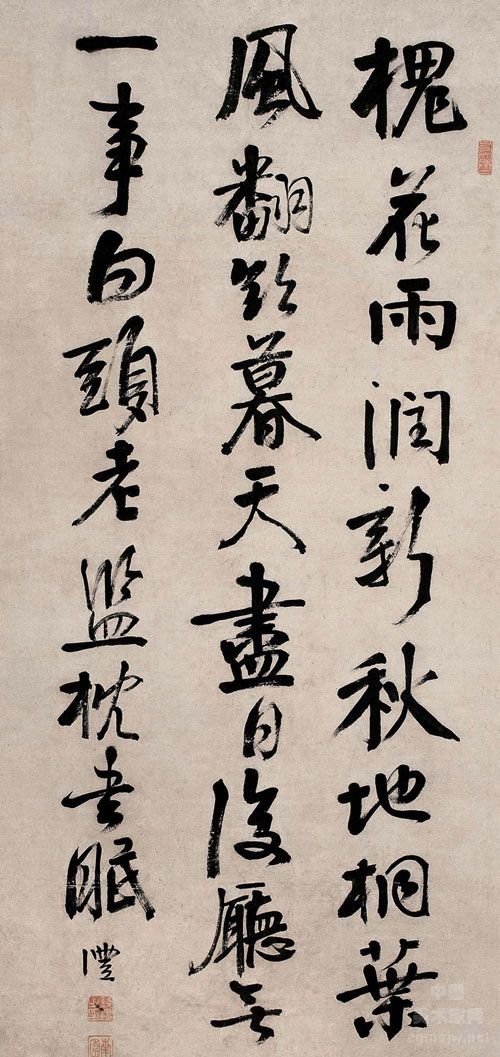 槐花雨潤新秋地桐葉
風翻欲暮天盡日後廳無
一事白頭老監枕書眠
zgmsjw.net